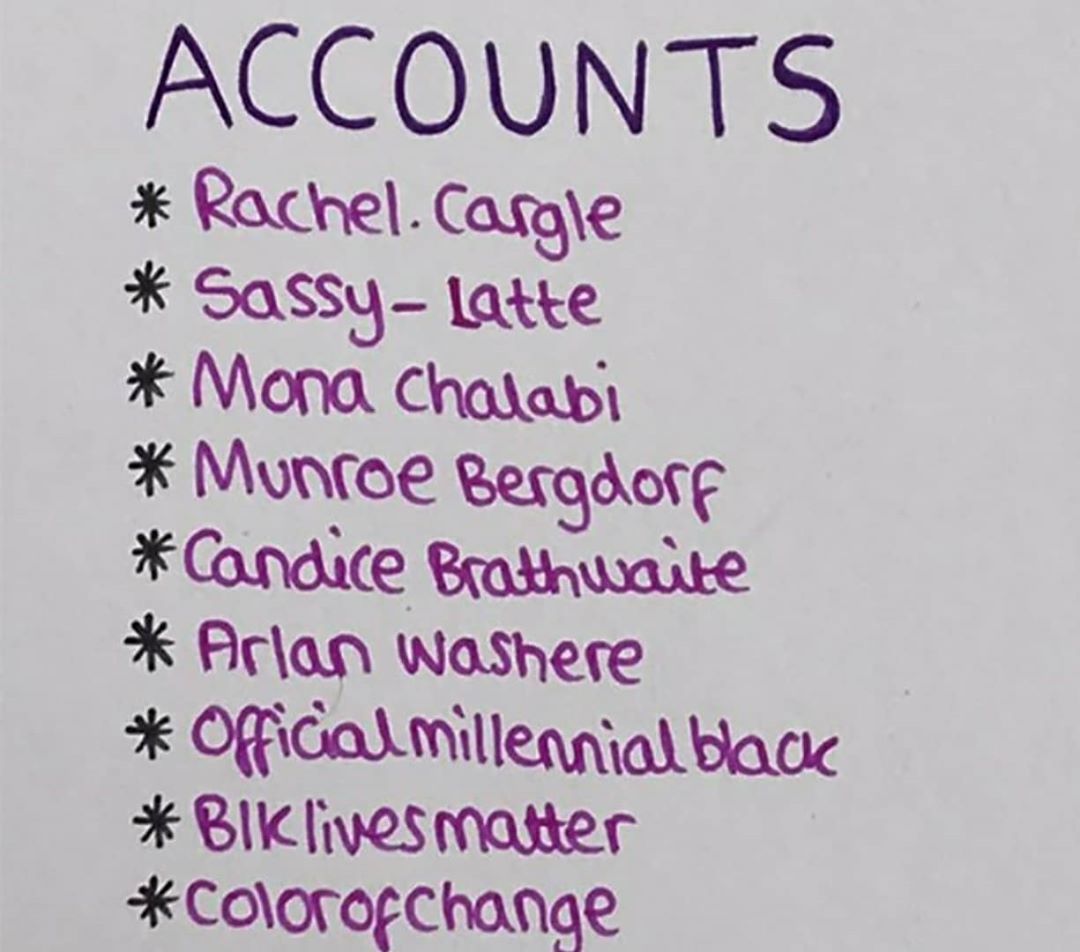 ACCOUNTS
* Rachel. Cargle
* Sassy - Latte
* Mona Chalabi
* Munroe Bergdorf
* Candice Brathwaite
* Arlan washere
* Officialmillennialblack
* Blklivesmatter
* Colorofchange